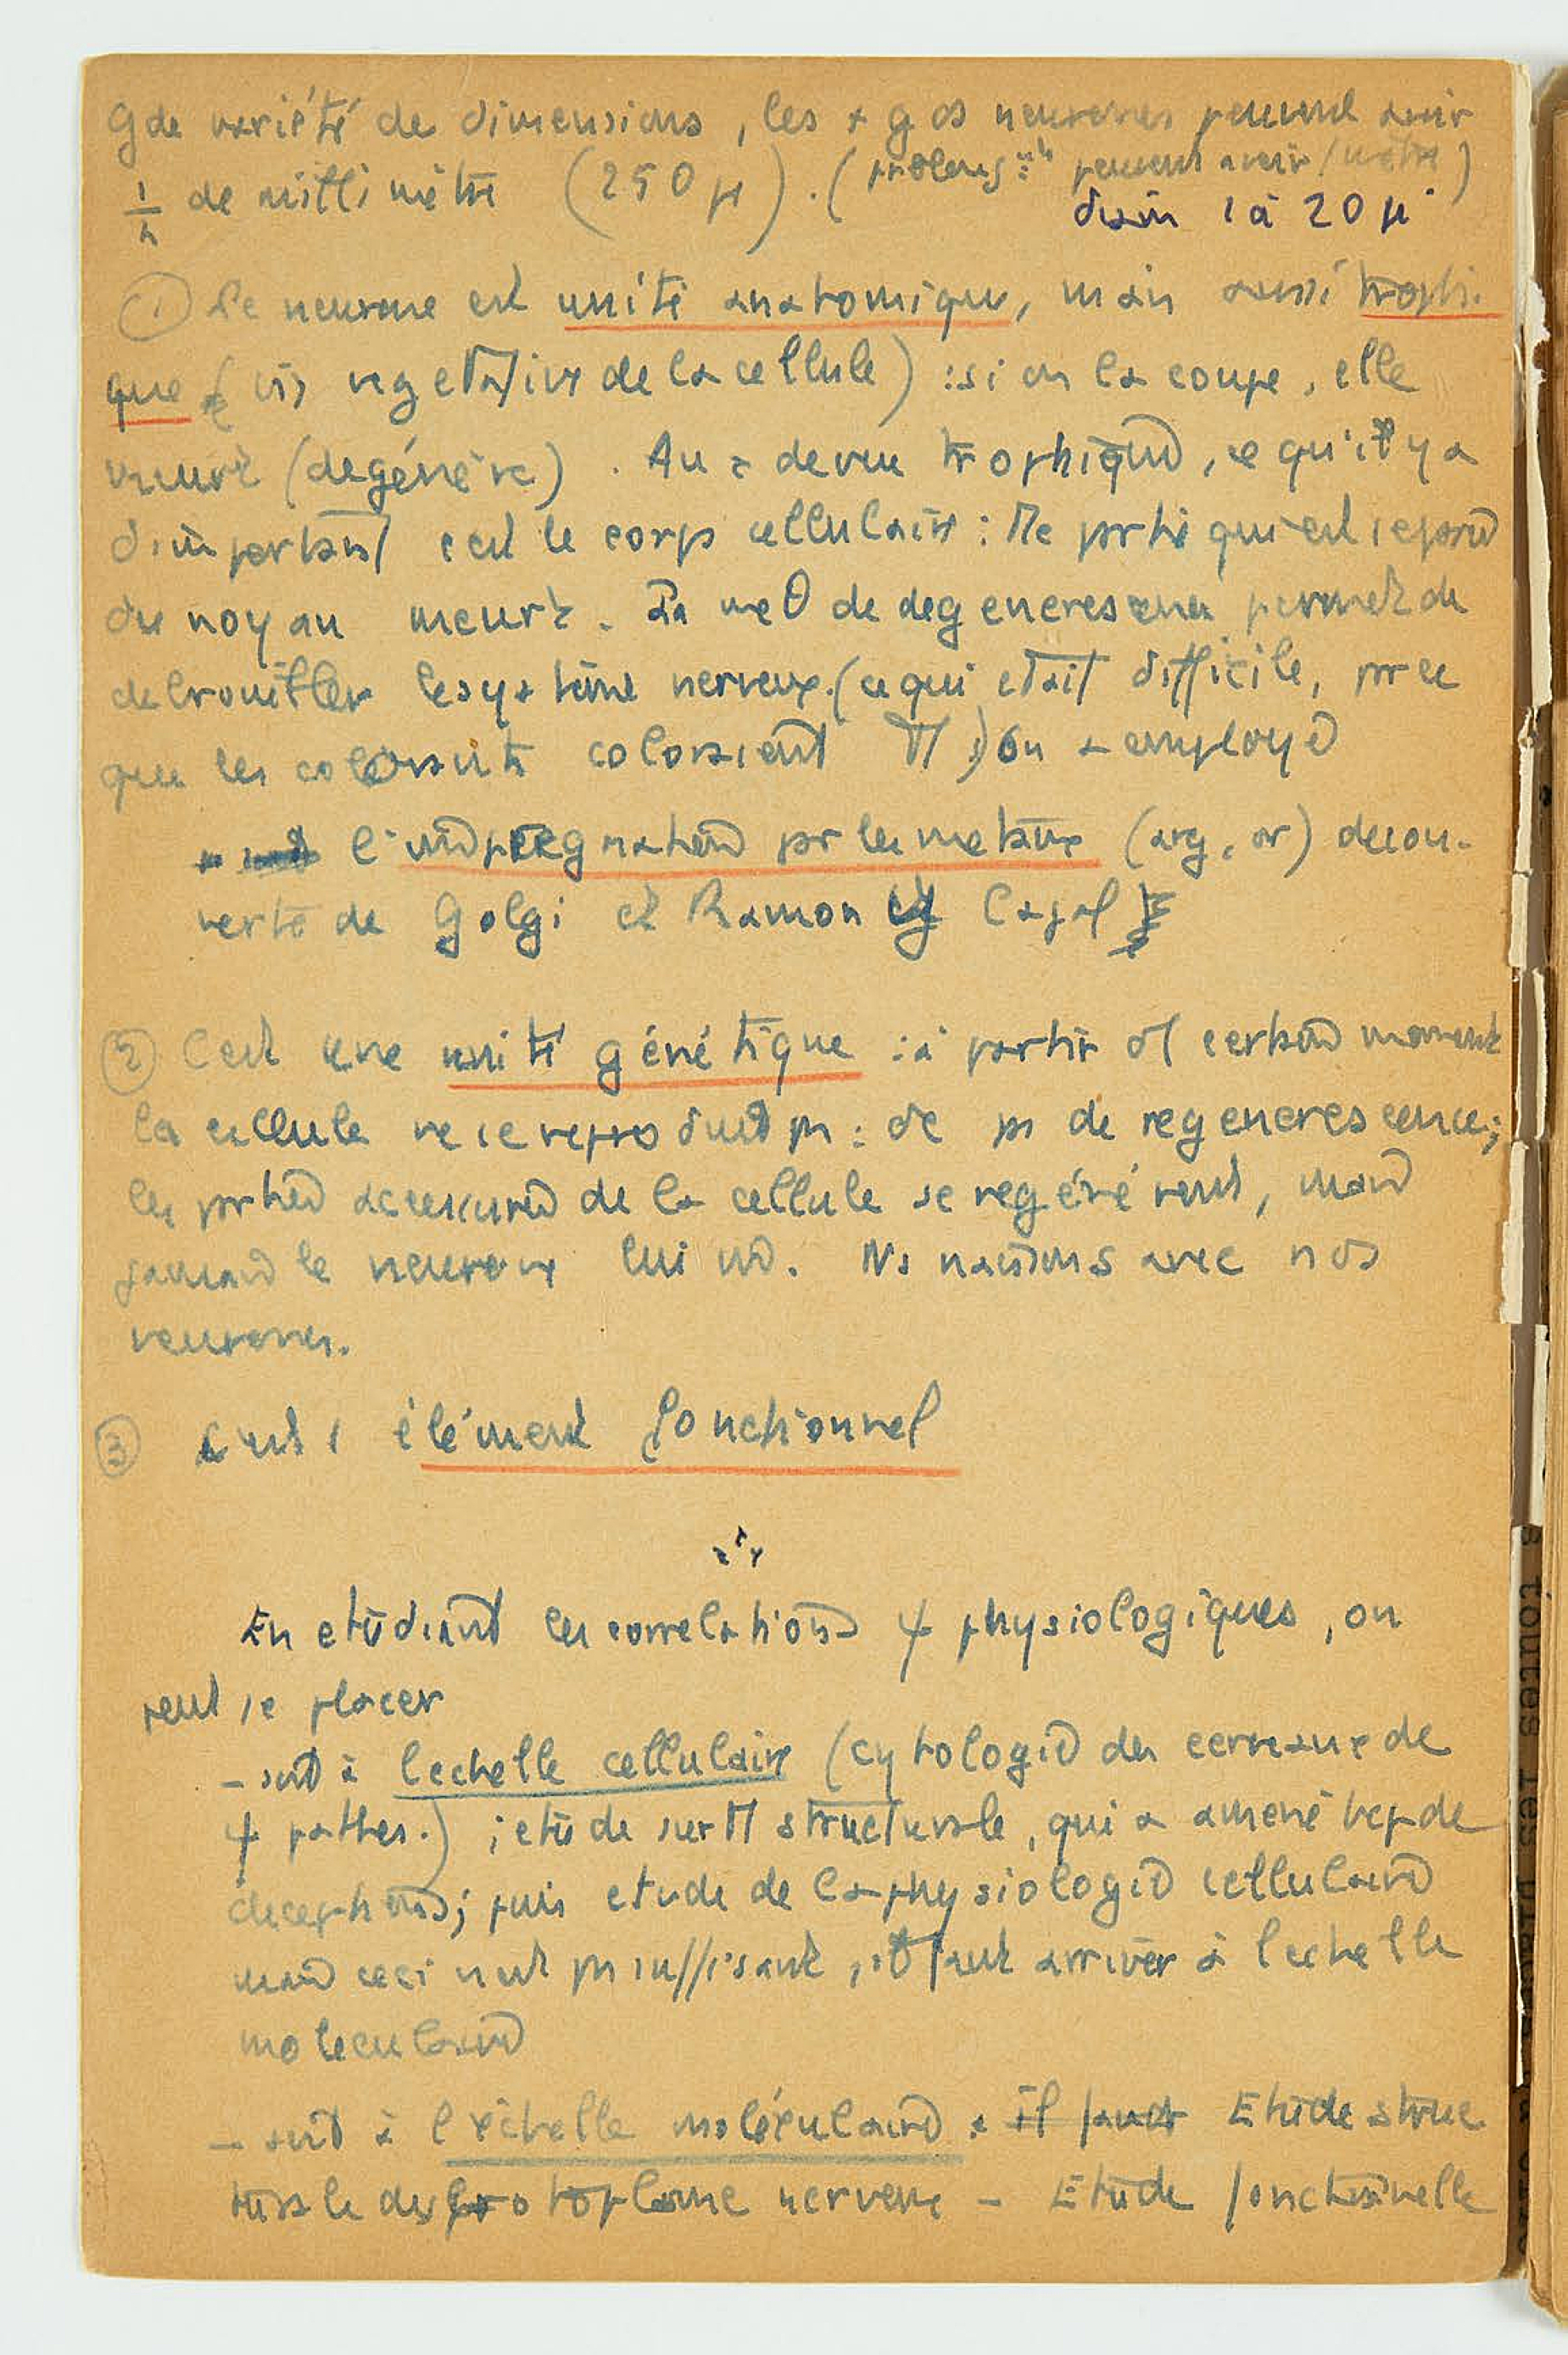 Gde variété de dimensions, les + gds neurones peuvent avoir
1/4 de millimètre (250 μ). (prolong. peuvent avoir 1 mètre)
diam 1 à 20 μ
① Le neurone est unité anatomique, mais aussi trophi-
que (vie vegetative de la cellule) : si on la coupe, elle
meurt (degénère). Au . de vue trophique, ce qu'il y a
d'important c'est le corps cellulaire : Tte partie qui est separée
du noyau meurt. La meθ de degenerescence permet de
debrouiller le système nerveux. (ce qui etait difficile, parce
que les colorants coloraient Tt) On a employé
l'impregnation par les metaux (arg, or) decou-
verte de Golgi et Ramon y Cajal
② C'est une unité génétique : à partir d'1 certain moment
la cellule ne se reproduit pas : de pas de regenerescence ;
les parties accessoires de la cellule se regénérent, mais
jamais le neurone lui mê. Ns naissons avec nos
neurones.
③ C'est 1 élément fonctionnel
En etudiant les correlations ψ physiologiques, on
peut se placer
- soit à l'echelle cellulaire (cytologie des cerveaux de
ψ pathes.) ; etude surTt structurale, qui a amené bcp de
deceptions ; puis etude de la physiologie cellulaire
mais ceci n'est pas suffisant, il faut arriver à l'echelle
moleculaire
- soit à l'échelle moléculaire . il faut Etude struc
turale du protoplasme nerveux - Etude fonctionnelle
s toutes les